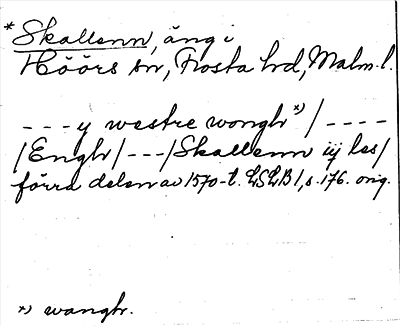 *Skallenn, äng i
Höörs sn, Frosta hd, Malm. l.
---y westre wongh*)/----
/Engh/---/Skallenn iij las/
förra delen av 1570-t. LSLB 1, s. 176. orig.
*) wangh.